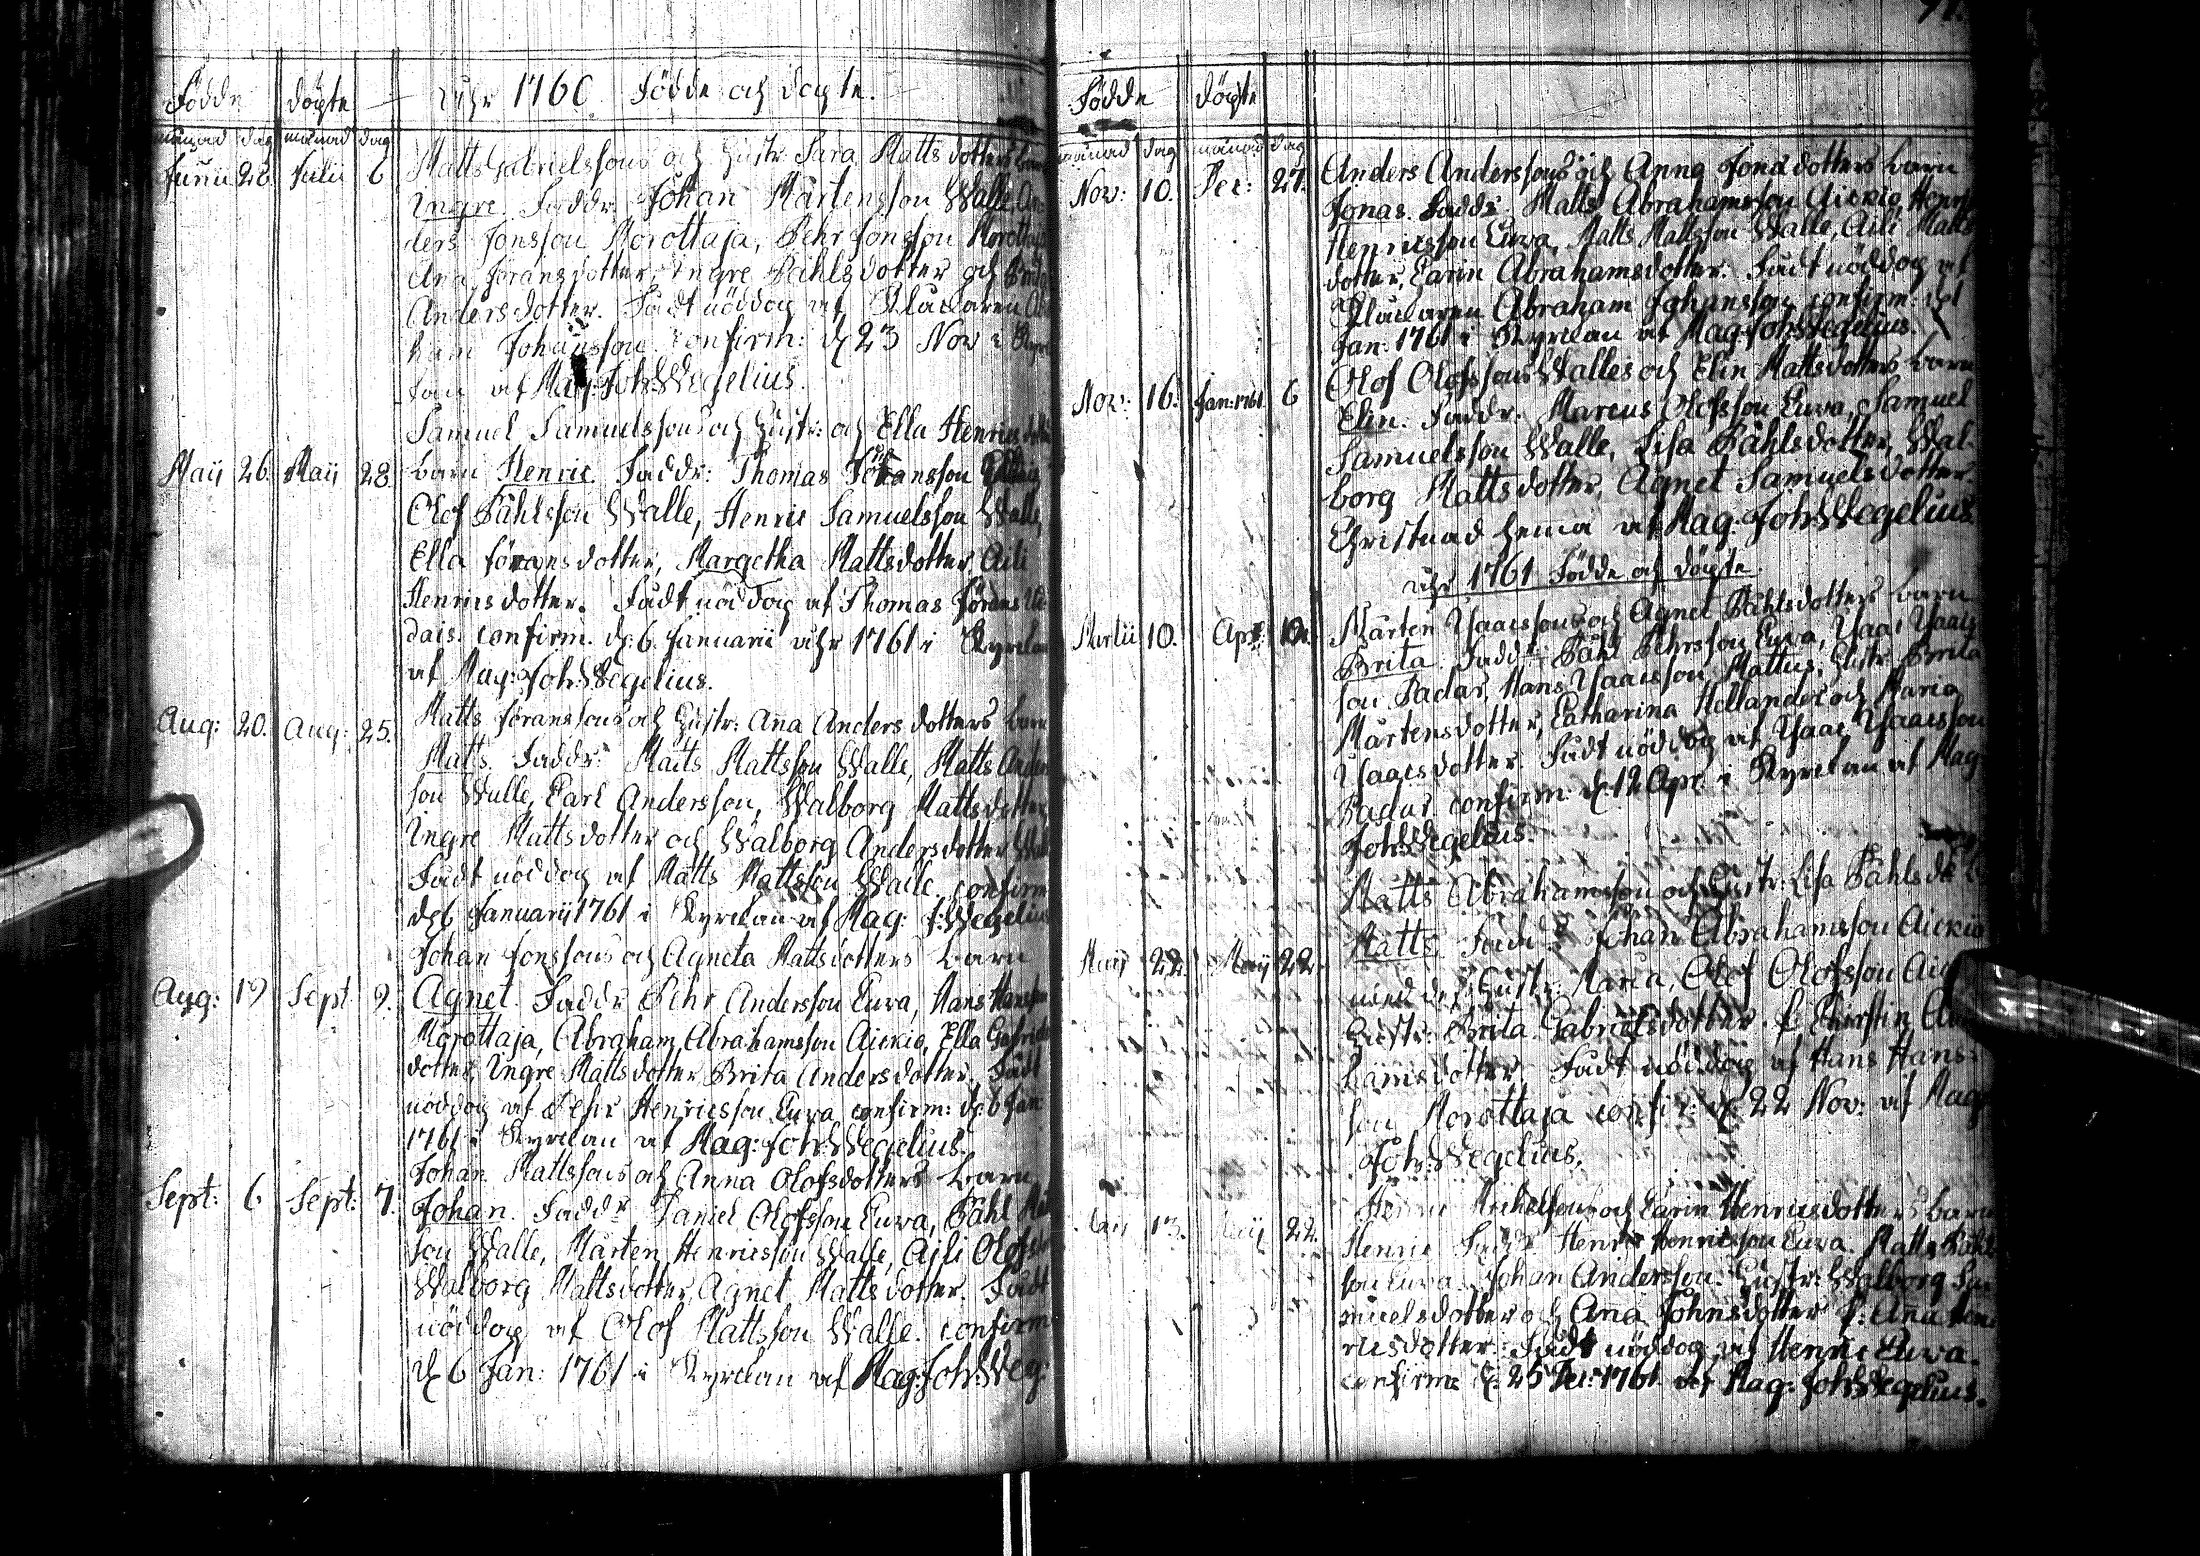 Födde döpte Åhr 1760 Födde och döpte.
månad dag månad dag
Junii 28 Julii 6 Matts Gabrielssons och Hustr. Sara Matts dotters barn
Ingre. Faddr. Johan Mårtensson Walle, An-
ders Jonsson Morottaja, Pehr Jonsson Morottaja
Ana Joransdotter, Ingre Påhlsdotter och Brita
Andersdotter. Fådt nöddop af Kluckaren Abra
ham Johansson confirm: d 23 Nov i Kyrc
kan af Mag: Joh: Wegelius.
Samuel Samuelssons och Hustr: och Ella Henricsdotters
Maij 26. Maij 28. barn Henric. Faddr: Thomas Joransson
Olof Påhlsson Walle, Henric Samuelsson Walle,
Ella Joransdotter, Margetha Mattsdotter, Aili
Henricsdotter. Fådt nöddop af Thomas Jörans
dais. confirm. d: 6. Januarii åhr 1761 i Kyrckan
af Mag: Joh: Wegelius.
Aug: 20. Aug: 25. Matts Joranssons och Hustr: Ana Anders dotters barn
Matts. Faddr: Matts Mattsson Walle, Matts Anders
son Walle, Carl Andersson, Walborg Mattsdotter,
Ingre Mattsdotter och Walborg Andersdotter
Fådt nöddop af Matts Mattsson Walle. confirm
d: 6 Januarij 1761 i Kyrckan af Mag: J: Wegelius
Johan Jonssons och Agneta Mattsdotters barn
Aug: 19 Sept 9. Agnet. Faddr Pehr Andersson Euva, Hans Hansson
Morottaja, Abraham Abrahamsson Aickio, Ella Gabriels
dotter, Ingre Mattsdotter, Brita Andersdotter, Fådt
nöddop af Pehr Henricsson Euva confirm: d: 6 Jan
1761 i Kyrckan af Mag: Joh: Wegelius.
Johan Mattssons och Anna Olofsdotters barn
Sept: 6 Sept: 7. Johan. Faddr Daniel Olofsson Euva, Påhl
son Walle, Mårten Henricsson Walle, Aili Olofsd
Walborg Mattsdotter, Agnet Mattsdotter. Fådt
nöddop af Olof Mattsson Walle. confirm
d 6 Jan: 1761 i Kyrckan af Mag: Joh: Weg:
Födde döpte
månad dag månad dag
Nov: 10. Dec: 27. Anders Anderssons och Anna Jonadotters barn
Jonas. Faddr. Matts Abrahamsson Aickio, Henric
Henricsson Euva, Matts Mattsson Walle, Aili Matts
dotter, Carin Abrahamsdotter. Fådt nöddop af
Kluckaren Abraham Johansson confirm: d 1
Jan: 1761 i Kyrckan af Mag: Joh: Wegelius.
Nov: 16. Jan: 1761 6 Olof Olofssons Walles och Elin Mattsdotters barn
Elin. Faddr. Marcus Olofsson Euva, Samuel
Samuelsson Walle, Lisa Påhlsdotter, Wal-
borg Mattsdotter, Agnet Samuelsdotter.
Christnad hema af Mag: Joh: Wegelius.
Åhr 1761 Födde och döpte.
Martii 10. Apr: 12. Mårten Isaacssons och Agnet Påhlsdotters barn
Brita. Faddr: Påhl Pehrsson Euva, Isaac Isaacs
son Padar, Hans Isaacsson Mattus, Hustr. Brita
Mårtensdotter, Catharina Hellander och Maria
Isaacsdotter. Fådt nöddop af Isaac Isaacsson
Padar confirm d: 12 Apr: i Kyrckan af Mag:
Joh: Wegelius.
Matts Abrahamsson och Hustr: Lisa Påhlsd
Maij 22. Maij 22. Matts. Faddr: Johan Abrahamsson Aickio
med dess Hustr: Maria, Olof Olofsson
Hustr: Brita Gabrielsdotter. P. Kirstin
hamsdotter. Fådt nöddop af Hans Hans-
son Morottaja confir: d: 22 Nov: af Mag:
Joh: Wegelius.
Henric Michelssons och Carin Henricsdotters barn
13. Maij 22. Henric. Faddr Henric Henricsson Euva. Matts Påhls
son Euva. Johan Andersson. Hustr: Walborg Sa
muelsdotter och Ana Johnsdotter P: Ana Hen
ricsdotter. Fådt nöddop af Henric Euva.
confirm: d: 25 Dec: 1761 af Mag: Joh: Wegelius.